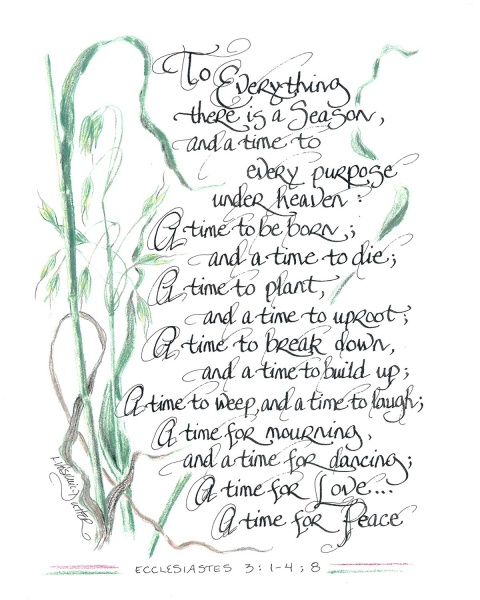 To Everything
there is a Season,
and a time to
every purpose
under heaven:
A time to be born;
and a time to die;
A time to plant,
and a time to uproot;
A time to break down,
and a time to build up;
A time to weep, and a time to laugh;
A time for mourning,
and a time for dancing;
A time for Love...
A time for Peace
ECCLESIASTES 3:1-4; 8